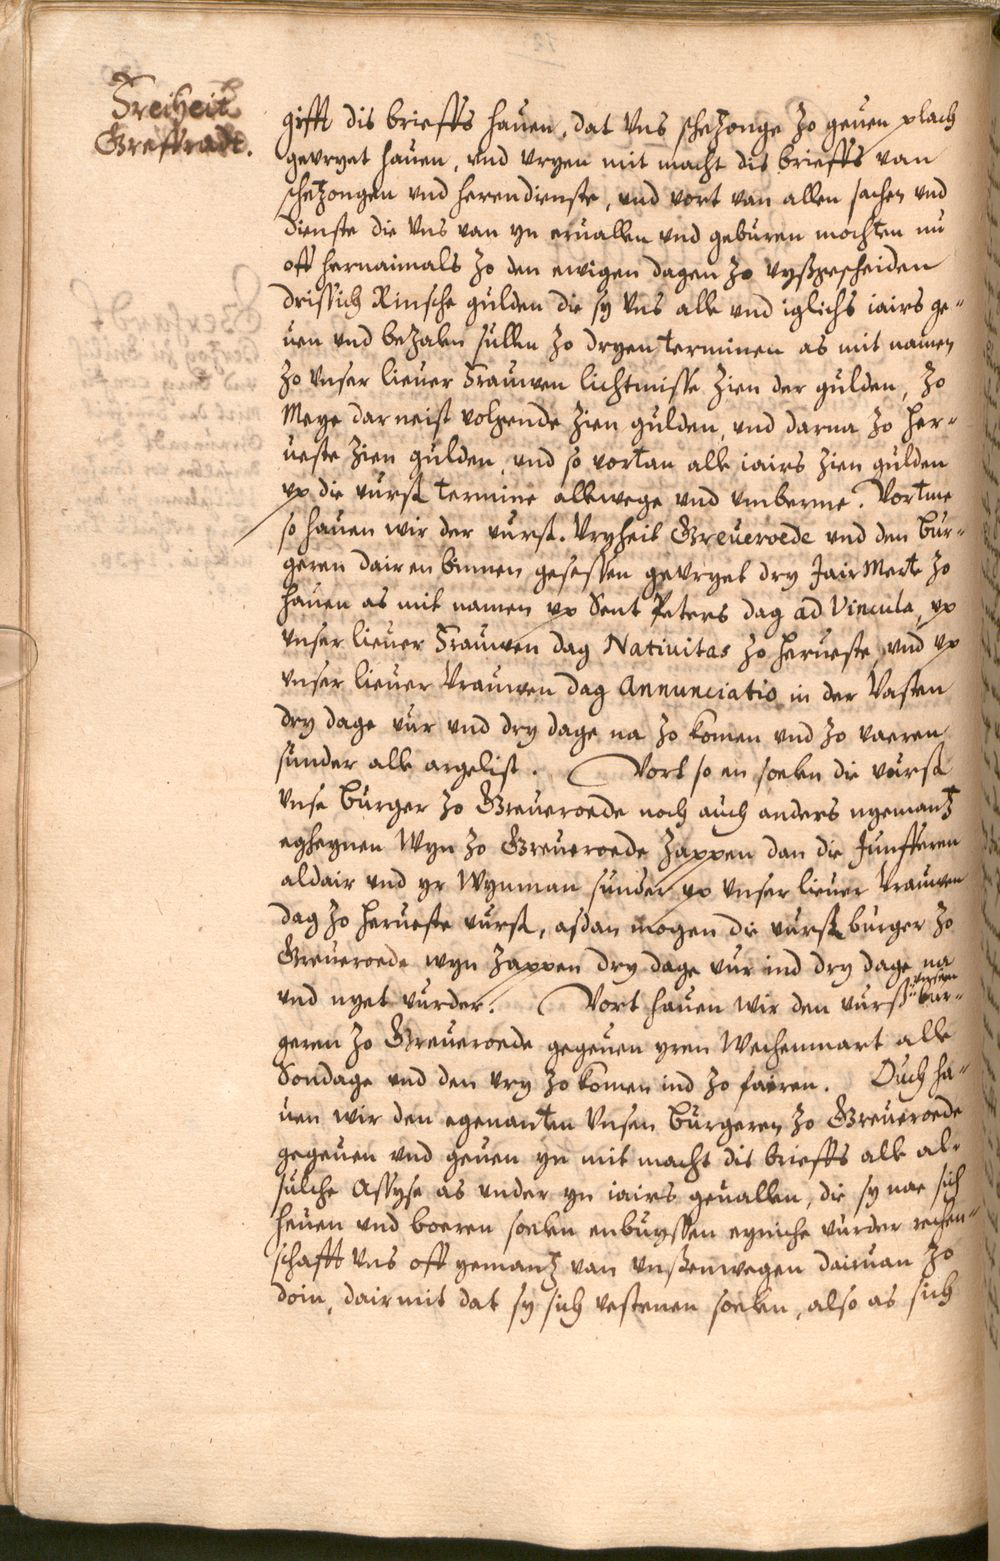 Freiheit
Greffradt.
gifft dis brieffs hauen, dat vns schetzonge zo geuen plach
gevryet hauen, vnd vryen mit macht dis brieffs van
schetzongen vnd herendienste, vnd vort van allen sachen vnd
dienste die vns van yn eruallen vnd geburen mochten nu
off hernaimals zo den ewigen dagen zo vyßgescheiden
drissich Rinsche gulden die sy vns alle vnd iglichs iairs ge-
uen vnd bezalen sullen zo dryen terminen as mit namen
zo vnser lieuer Frauwen lichtmisse Zien der gulden, zo
Meye dar neist volgende Zien gulden, vnd darna zo her-
ueste Zien gulden, vnd so vortan alle iairs Zien gulden
vp die vurß termine allewege vnd vmberme. Vortme
so hauen wir der vurß. Vryheit Greueroede vnd den Bur-
geren dairenbinnen gesessen gevryet dry Jair Mert zo
hauen as mit namen vp Sent Peters dag ad Vincula, vp
vnser lieuer Frauwen dag Natiuitas zo herueste, vnd vp
vnser lieuer Vrauwen dag Annunciatio in der Vasten
dry dage vur vnd dry dage na zo komen vnd zo vaeren
sunder alle argelist. Vort so en soelen die vurß
vnse Burger zo Greueroede noch auch anders nyemantz
egheynen Wyn zo Greueroede Zappen dan die Junfferen
aldair vnd yr Wynman sunder vp vnser lieuer Vrauwen
dag zo herueste vurß, asdan mogen die vurß burger zo
Greueroede wyn Zappen dry dage vur ind dry dage na
vnd nyet vurder. Vort hauen wir den vurß vnsen bur-
geren zo Greueroede gegeuen yren Wechenmart alle
Sondage vnd den vry zo komen ind zo faeren. Ouch ha-
uen wir den egenanten vnsen Burgeren zo Greueroede
gegeuen vnd geuen yn mit macht dis brieffs alle al-
sulche Assyse as vnder yn iairs geuallen, die sy nae sich
heuen vnd boeren soelen enbuyssen eyniche vurder rechen-
schafft vns off yemantz van vnßenwegen dairuan zo
doin, dairmit dat sy sich vestenen soelen, also as sich